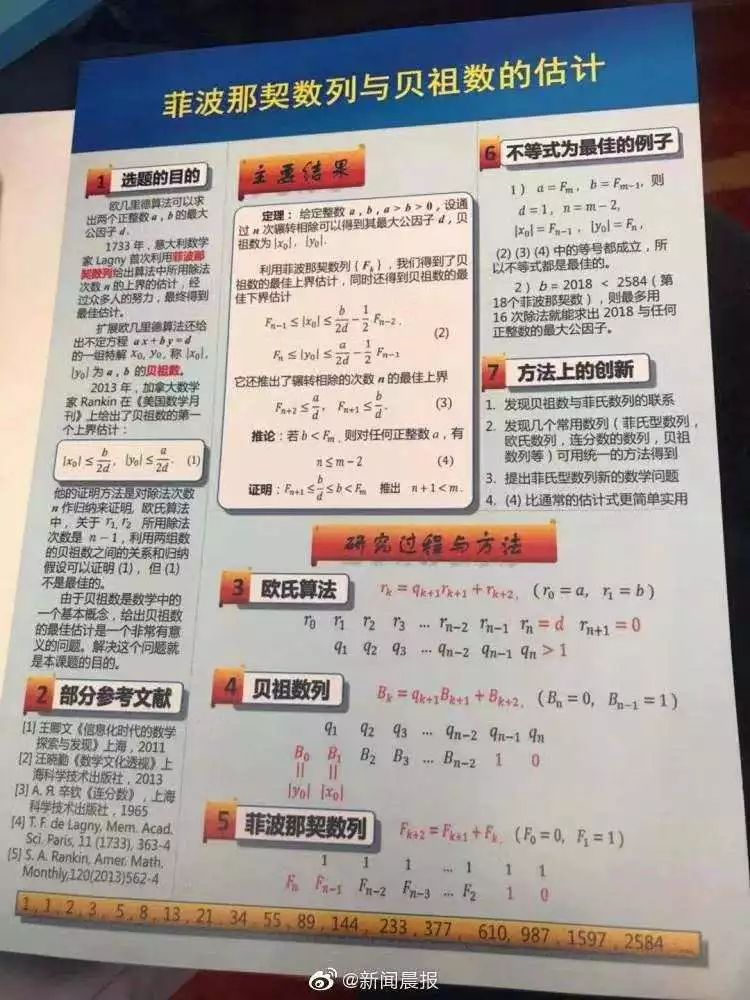 菲波那契数列与贝祖数的估计
1 选题的目的
欧几里德算法可以求
出两个正整数 a , b 的最大
公因子 d .
1733 年，意大利数学
家 Lagny 首次利用菲波那
契数列给出算法中所用除法
次数 n 的上界的估计，经
过众多人的努力，最终得到
最佳估计。
扩展欧几里德算法还给
出不定方程 ax+by=d
的一组特解 x₀, y₀, 称 |x₀|,
|y₀| 为 a, b 的贝祖数。
2013 年，加拿大数学
家 Rankin 在《美国数学月
刊》上给出了贝祖数的第一
个上界估计：
|x₀| ≤ b/2d, |y₀| ≤ a/2d. (1)
他的证明方法是对除法次数
n 作归纳来证明, 欧氏算法
中，关于 r₁, r₂ 所用除法
次数是 n−1，利用两组数
的贝祖数之间的关系和归纳
假设可以证明 (1)，但 (1)
不是最佳的。
由于贝祖数是数学中的
一个基本概念，给出贝祖数
的最佳估计是一个非常有意
义的问题。解决这个问题就
是本课题的目的。
2 部分参考文献
[1] 王卿文《信息化时代的数学
探索与发现》上海，2011
[2] 汪晓勤《数学文化透视》上
海科学技术出版社，2013
[3] A. Я. 辛钦《连分数》，上海
科学技术出版社，1965
[4] T. F. de Lagny, Mem. Acad.
Sci. Paris, 11 (1733), 363-4
[5] S. A. Rankin, Amer. Math.
Monthly,120(2013)562-4
主要结果
定理：给定整数 a , b , a > b > 0，设通
过 n 次辗转相除可以得到其最大公因子 d，贝
祖数为 |x₀|, |y₀|.
利用菲波那契数列 {Fₖ}，我们得到了贝
祖数的最佳上界估计，同时还得到贝祖数的最
佳下界估计
Fₙ₋₁ ≤ |x₀| ≤ b/d − 1/2 Fₙ₋₂ .
(2)
Fₙ ≤ |y₀| ≤ a/2d − 1/2 Fₙ₋₁
它还推出了辗转相除的次数 n 的最佳上界
Fₙ₊₂ ≤ a/d, Fₙ₊₁ ≤ b/d. (3)
推论：若 b < Fₘ, 则对任何正整数 a，有
n ≤ m − 2 (4)
证明：Fₙ₊₁ ≤ b/d ≤ b < Fₘ 推出 n + 1 < m .
6 不等式为最佳的例子
1 ) a = Fₘ , b = Fₘ₋₁, 则
d = 1 , n = m − 2,
|x₀| = Fₙ₋₁ , |y₀| = Fₙ ,
(2) (3) (4) 中的等号都成立，所
以不等式都是最佳的。
2 ) b = 2018 < 2584 ( 第
18个菲波那契数 )，则最多用
16 次除法就能求出 2018 与任何
正整数的最大公因子。
7 方法上的创新
1. 发现贝祖数与菲氏数列的联系
2. 发现几个常用数列 ( 菲氏型数列，
欧氏数列，连分数的数列，贝祖
数列等 ) 可用统一的方法得到
3. 提出菲氏型数列新的数学问题
4. (4) 比通常的估计式更简单实用
研究过程与方法
3 欧氏算法 rₖ = qₖ₊₁rₖ₊₁ + rₖ₊₂, ( r₀ = a, r₁ = b )
r₀ r₁ r₂ r₃ … rₙ₋₂ rₙ₋₁ rₙ = d rₙ₊₁ = 0
q₁ q₂ q₃ … qₙ₋₂ qₙ₋₁ qₙ > 1
4 贝祖数列 Bₖ = qₖ₊₁Bₖ₊₁ + Bₖ₊₂, ( Bₙ = 0, Bₙ₋₁ = 1 )
q₁ q₂ q₃ … qₙ₋₂ qₙ₋₁ qₙ
B₀ B₁ B₂ B₃ … Bₙ₋₂ 1 0
|| ||
|y₀| |x₀|
5 菲波那契数列 Fₖ₊₂ = Fₖ₊₁ + Fₖ, ( F₀ = 0, F₁ = 1 )
1 1 1 … 1 1 1
Fₙ Fₙ₋₁ Fₙ₋₂ Fₙ₋₃ … F₂ 1 0
1 , 1 , 2 , 3 , 5 , 8 , 13 , 21 , 34 , 55 , 89 , 144 , 233 , 377 , 610, 987 , 1597 , 2584
@新闻晨报